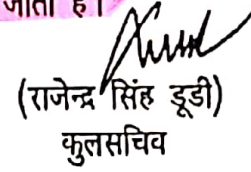 जाता है।
(राजेन्द्र सिंह डूडी)
कुलसचिव